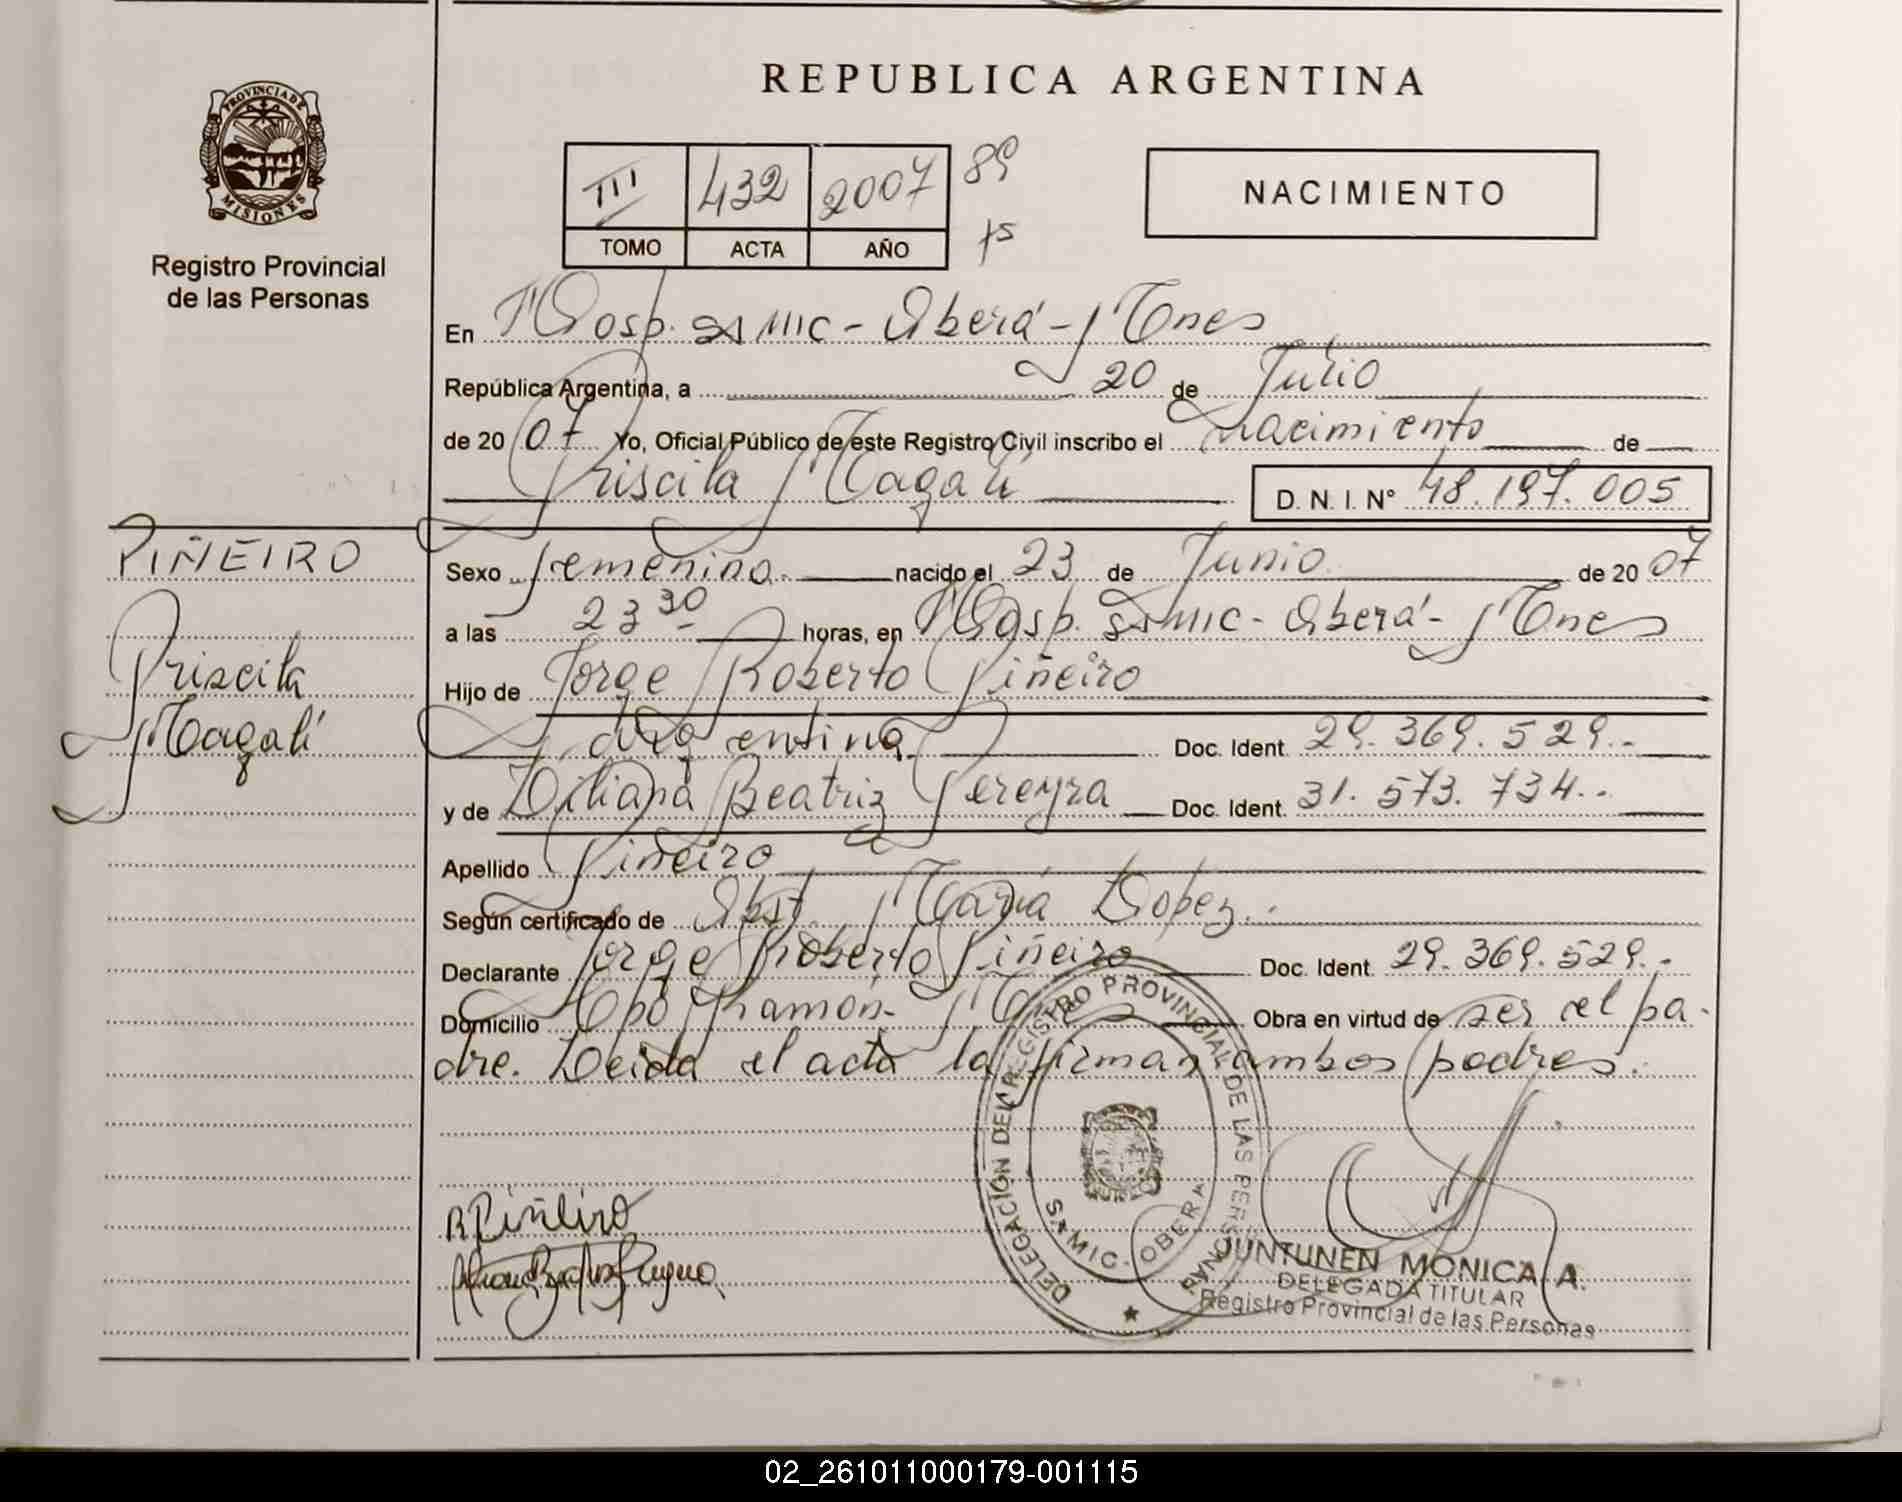 REPUBLICA ARGENTINA
PROVINCIA DE
MISIONES
Registro Provincial
de las Personas
III 432 2007 89
TOMO ACTA AÑO 75
NACIMIENTO
En Hosp. SAMIC - Oberá - Mnes
República Argentina, a 20 de Julio
de 2007 Yo, Oficial Público de este Registro Civil inscribo el nacimiento de
Priscila Magalí D. N. I. N° 48.197.005
PIÑEIRO
Priscila
Magalí
Sexo femenino. nacido el 23 de Junio de 2007
a las 23 30 horas, en Hosp. SAMIC - Oberá - Mnes
Hijo de Jorge Roberto Piñeiro
argentina Doc. Ident. 29.369.529.-
y de Liliana Beatriz Pereyra Doc. Ident. 31.573.734.-
Apellido Piñeiro
Según certificado de Obst. María Lopez.-
Declarante Jorge Roberto Piñeiro Doc. Ident. 29.369.529.-
Domicilio Cpo Ramón - Mnes Obra en virtud de ser el pa-
dre. Leida el acta la firman ambos padres.-
R Piñeiro
DELEGACIÓN DEL REGISTRO PROVINCIAL DE LAS PERSONAS
SAMIC - OBERA
JUNTUNEN MONICA A.
DELEGADA TITULAR
Registro Provincial de las Personas
02_261011000179-001115